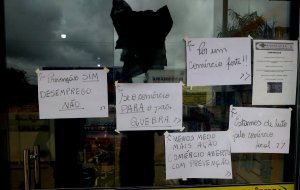 Prevenção SIM
DESEMPREGO
NÃO
Se o comércio
PARA o país
QUEBRA
Por um
comércio forte!!
MENOS MEDO
MAIS AÇÃO
COMÉRCIO ABERTO
COM PREVENÇÃO
Estamos de luto
pelo comércio
local